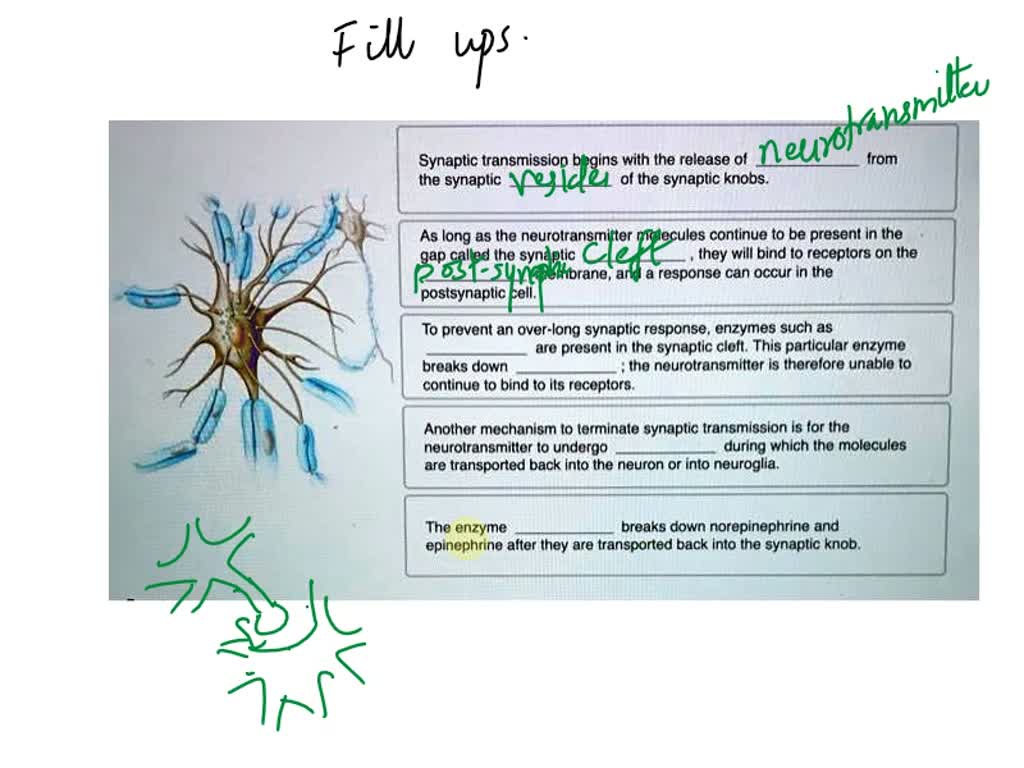 Fill ups.
Synaptic transmission begins with the release of neurotransmitter from
the synaptic vesicles of the synaptic knobs.
As long as the neurotransmitter molecules continue to be present in the
gap called the synaptic cleft, they will bind to receptors on the
post-synaptic membrane, and a response can occur in the
postsynaptic cell.
To prevent an over-long synaptic response, enzymes such as
____________ are present in the synaptic cleft. This particular enzyme
breaks down ____________ ; the neurotransmitter is therefore unable to
continue to bind to its receptors.
Another mechanism to terminate synaptic transmission is for the
neurotransmitter to undergo ____________ during which the molecules
are transported back into the neuron or into neuroglia.
The enzyme ____________ breaks down norepinephrine and
epinephrine after they are transported back into the synaptic knob.